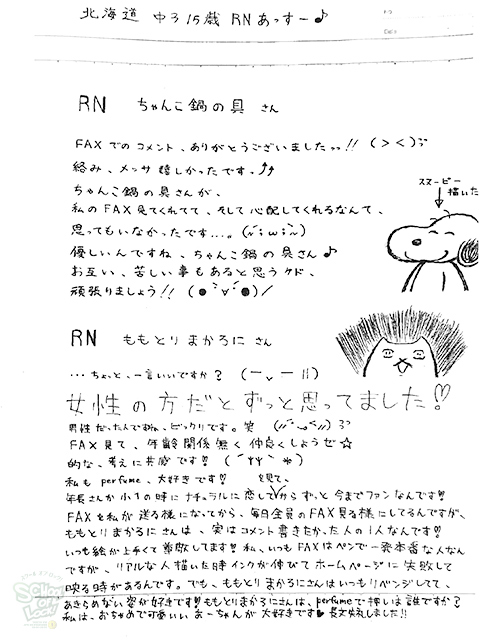 北海道 中3 15歳 RN あっすー♪
RN ちゃんこ鍋の具 さん
FAXでのコメント、ありがとうございましたッ!! (><)
絡み、メッサ嬉しかったです。
ちゃんこ鍋の具さんが、
私のFAX見てくれてて、そして心配してくれるなんて、
思ってもいなかったです...。
優しいんですね、ちゃんこ鍋の具さん♪
お互い、苦しい事もあると思うケド、
頑張りましょう!! (●´∀`●)/
スヌーピー
描いた
RN ももとりまかろに さん
…ちょっと、一言いいですか?
女性の方だとずっと思ってました!♡
男性だったんですね、ビックリです。笑
FAX見て、年齢関係無く仲良くしようぜ☆
的な、考えに共感です!
私もperfume、大好きです! を見て、
年長さんか小1の時にナチュラルに恋してからずっと今までファンなんです!
FAXを私が送る様になってから、毎日全員のFAX見る様にしてるんですが、
ももとりまかろにさんは、実はコメント書きたかった人の1人なんです!
いつも絵が上手くて尊敬してます! 私、いつもFAXはペンで一発本番な人なん
ですが、リアルな人描いた時インクが伸びてホームページに失敗して
映る時があるんです。でも、ももとりまかろにさんはいつもリベンジしてて、
あきらめない姿が好きです! ももとりまかろにさんは、perfumeで推しは誰ですか?
私は、おちゃめで可愛いい あ~ちゃんが大好きです♥ 長文失礼しました!!